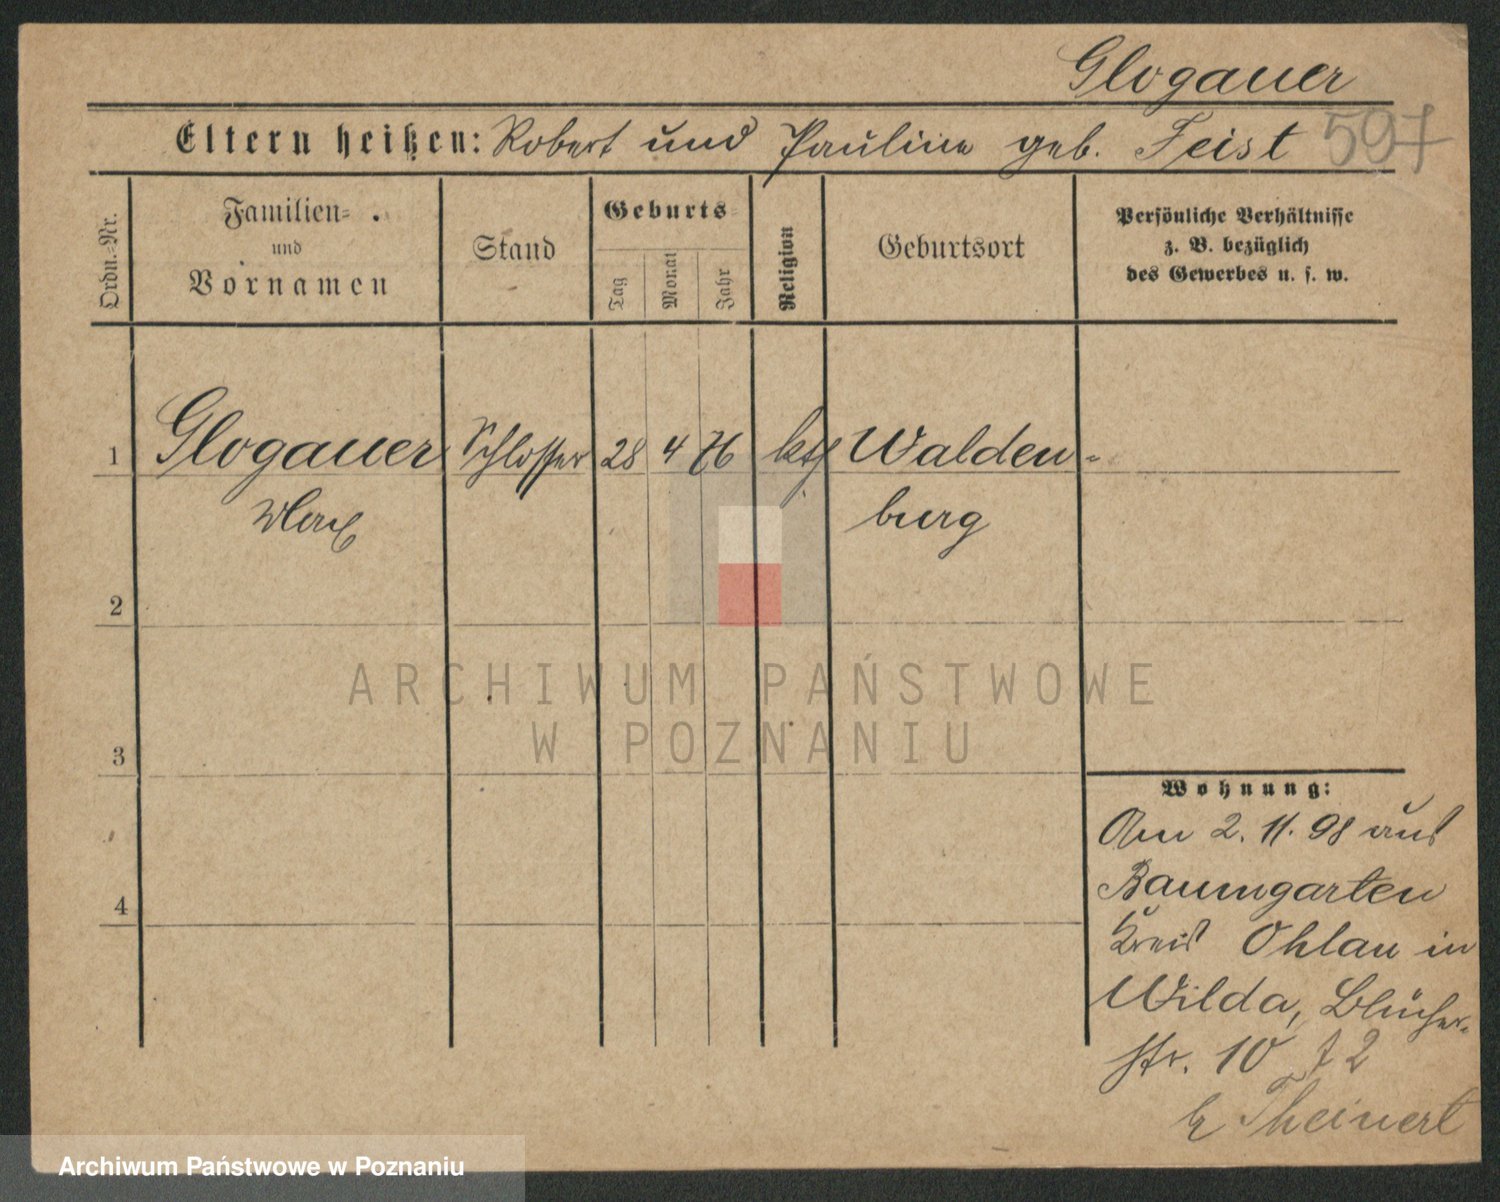 Glogauer
Eltern heißen: Robert und Pauline geb. Feist 597
Ordn.-Nr.
Familien-
und
Vornamen
Stand
Geburts-
Tag
Monat
Jahr
Religion
Geburtsort
Persönliche Verhältnisse
z. B. bezüglich
des Gewerbes u. s. w.
1 Glogauer Schlosser 28 4 76 kth Walden-
Max burg
2
ARCHIWUM PAŃSTWOWE
W POZNANIU
3
Wohnung:
Am 2. 11. 98 aus
Baumgarten
4
Kreis Ohlau in
Wilda, Blücher-
str. 10 I 2
b Theinert
Archiwum Państwowe w Poznaniu